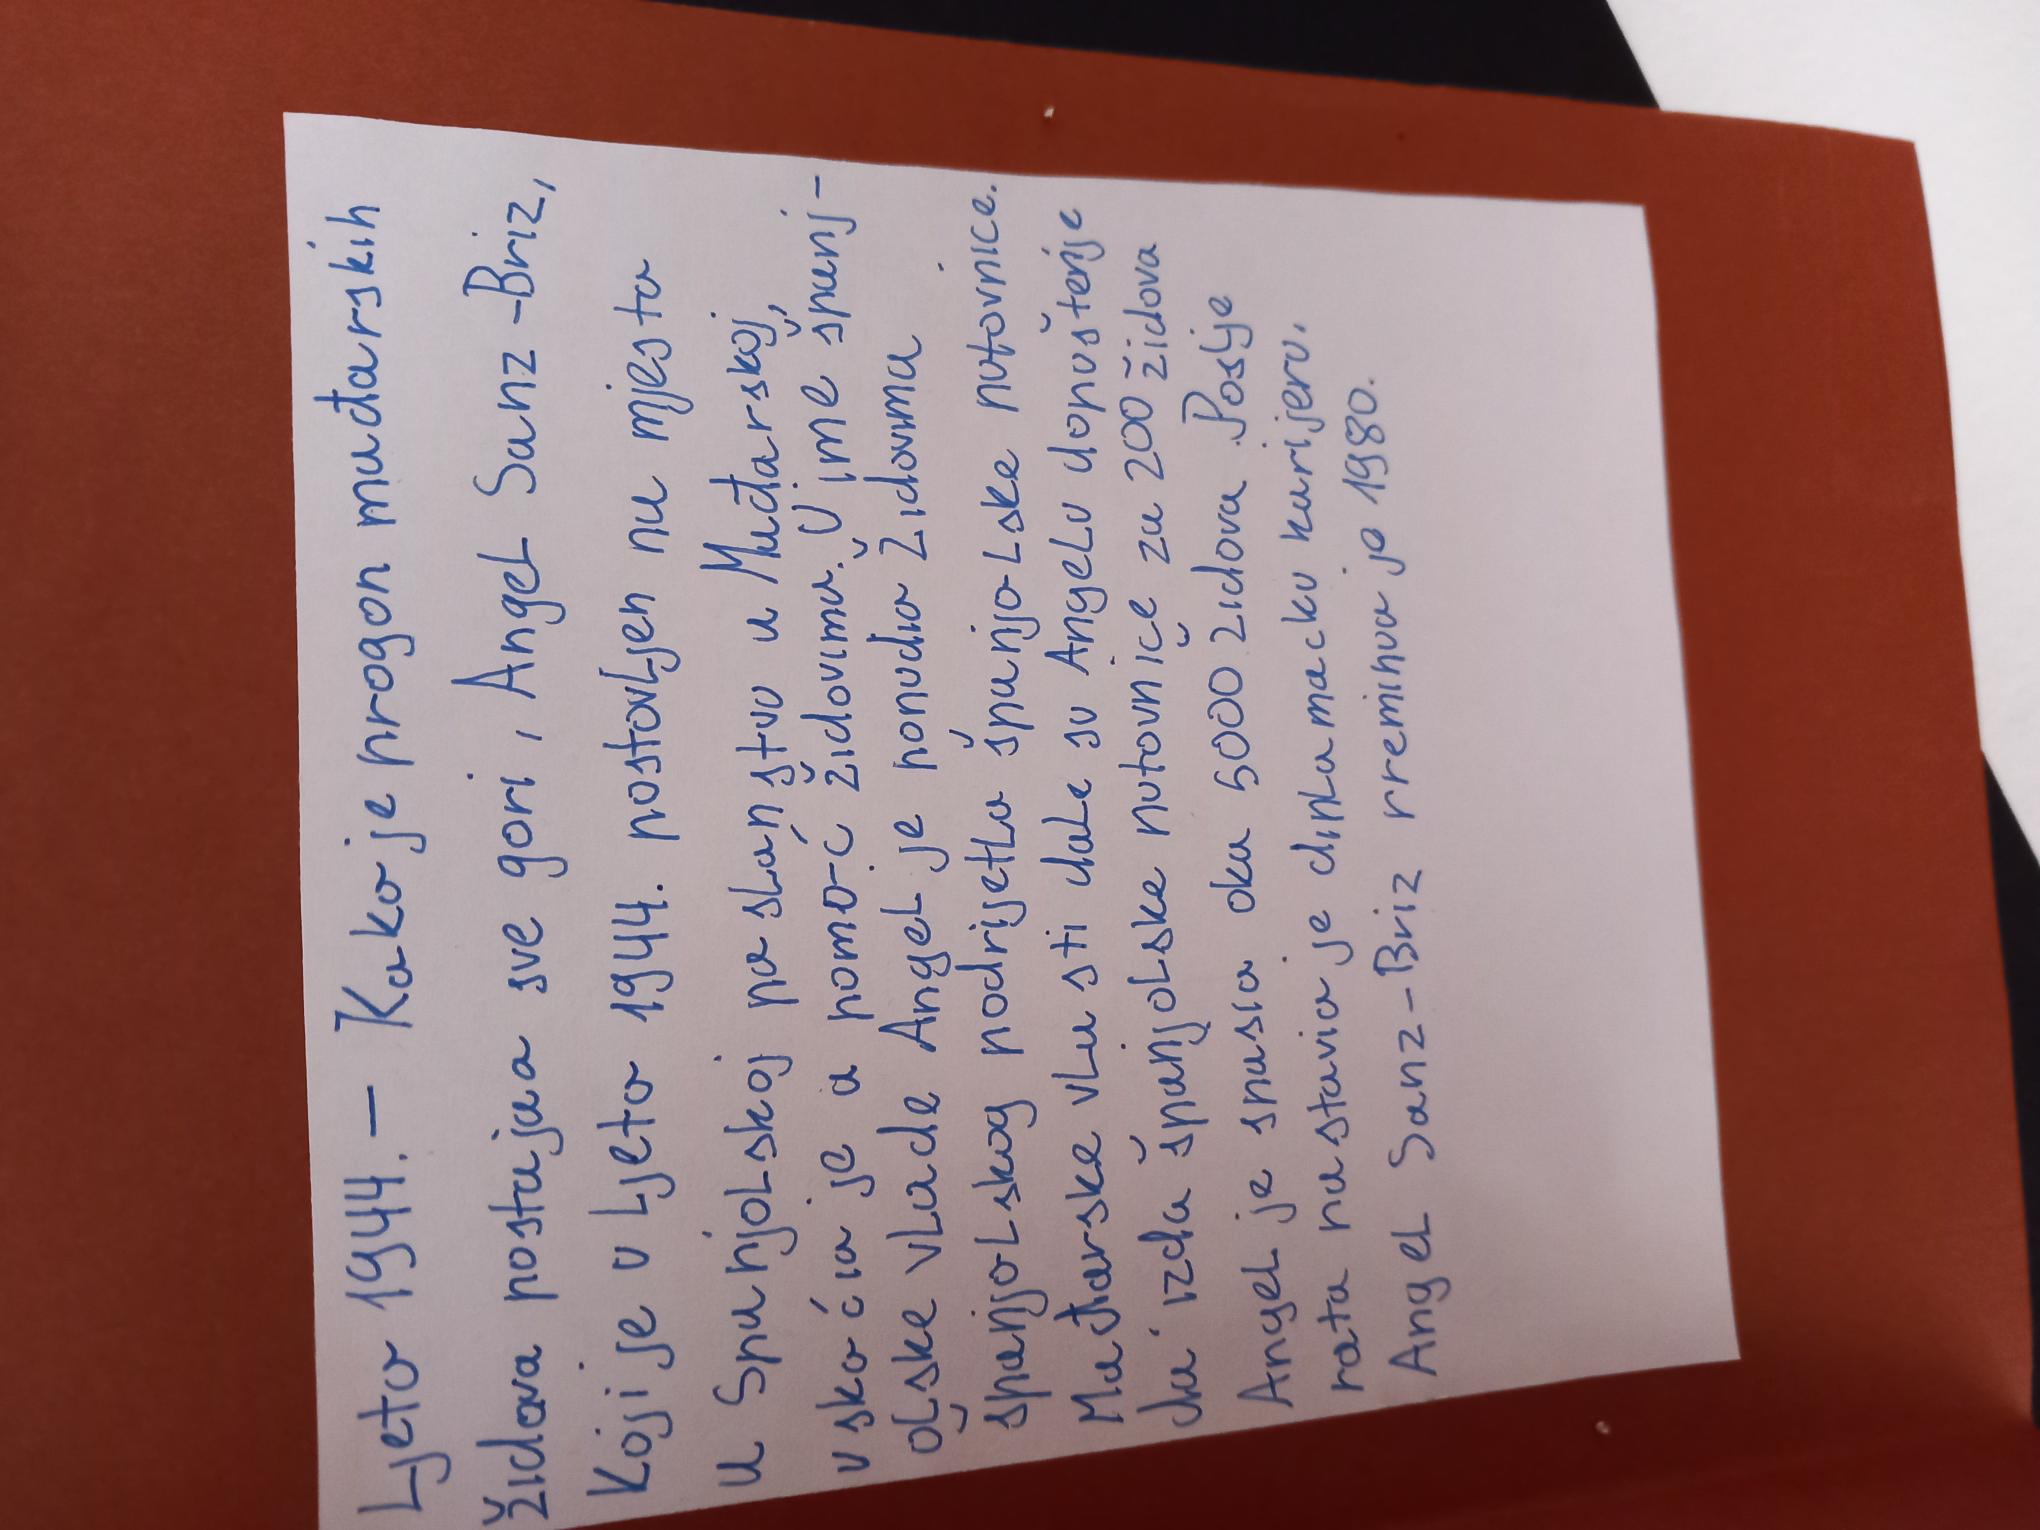 Ljeto 1944. – Kako je progon mađarskih
Židova postajao sve gori, Angel Sanz-Briz,
koji je u ljeto 1944. postavljen na mjesto
u Španjolskoj poslanstvu u Mađarskoj,
uskočio je u pomoć židovima. U ime španj-
olske vlade Angel je ponudio Židovima
španjolskog podrijetla španjolske putovnice.
Mađarske vlasti dale su Angelu dopuštenje
da izda španjolske putovnice za 200 židova
Angel je spasio oko 5000 židova. Poslje
rata nastavio je diplomacku karijeru.
Angel Sanz-Briz preminuo je 1980.